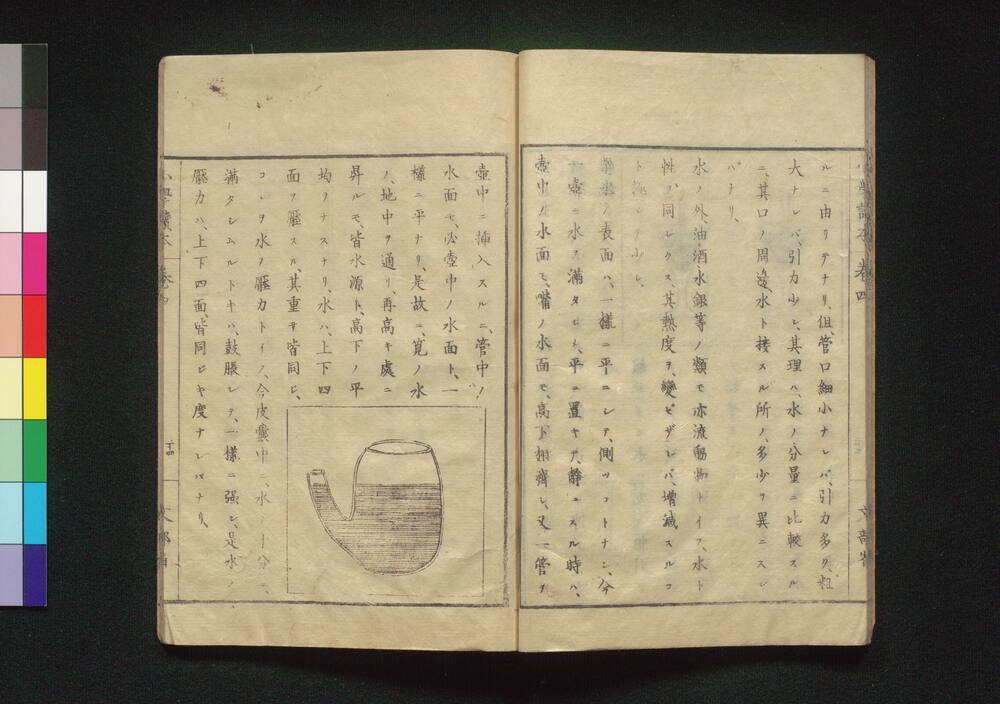 小學讀本 卷四
ルニ由リテナリ、但管口細小ナレバ、引力多ク、粗
大ナレバ、引力少シ、其理ハ、水ノ分量ニ比較スル
ニ、其口ノ周邊、水ト接スル所ノ、多少ヲ異ニスレ
バナリ、
水ノ外、油酒水銀等ノ類モ、亦流動物トイフ、水ト
性ハ同シクス、其熱度ヲ、變ゼザレバ、増減スルコ
ト極メテ少シ、
表面ハ、一樣ニ平ニシテ、側ツコトナシ、今
一壺ニ水ヲ滿タシ、平ニ置キテ、靜ニスル時ハ、
壺中ノ水面モ、嘴ノ水面モ、高下相齊シ、又一管ヲ
文部省
壺中ニ挿入スルニ、管中ノ
水面モ、必壺中ノ水面ト、一
樣ニ平ナリ、是故ニ、筧ノ水
ノ、地中ヲ通リ、再高キ處ニ
昇ルモ、皆水源ト、高下ノ平
均ヲナスナリ、水ハ、上下四
面ヲ壓スル、其重サ皆同ジ、
コレヲ水ノ壓力トイフ、今皮囊中ニ、水ヲ十分ニ、
滿タシムルトキハ、鼓脹シテ、一樣ニ强シ、是水ノ
壓力ハ、上下四面、皆同ジキ度ナレバナリ、
小學讀本 卷四
二十四
文部省